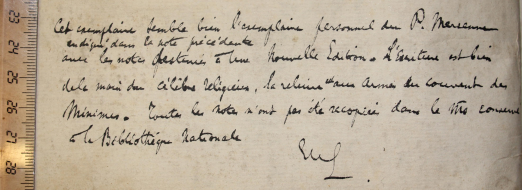 Cet exemplaire semble bien l'exemplaire personnel du P. Mersenne
indiqué dans la note précédente
avec les notes destinées à une Nouvelle Edition. L'Ecriture est bien
de la main du célèbre religieux, la reliure aux Armes du couvent des
Minimes. Toutes les notes n'ont pas été recopiées dans le Ms conservé
à la Bibliothèque Nationale
23
25
26
27
28